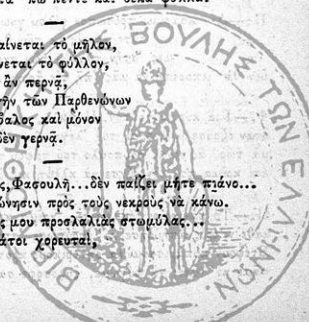 πέντε καὶ δέκα φύλλα.
αίνεται τὸ μῆλον,
νεται τὸ φύλλον,
ἂν περνᾷ,
τὴν τῶν Παρθενώνων
βαλος καὶ μόνον
δὲν γερνᾷ.
ς, Φασουλῆ... δὲν παίζει μήτε πιάνο...
ώνησιν πρὸς τοὺς νεκροὺς νὰ κάνω.
ς μου προσλαλιὰς στωμύλας...
άτοι χορευταί,
ΒΙΒΛΙΟΘΗΚΗ ΤΗΣ ΒΟΥΛΗΣ ΤΩΝ ΕΛΛΗΝΩΝ